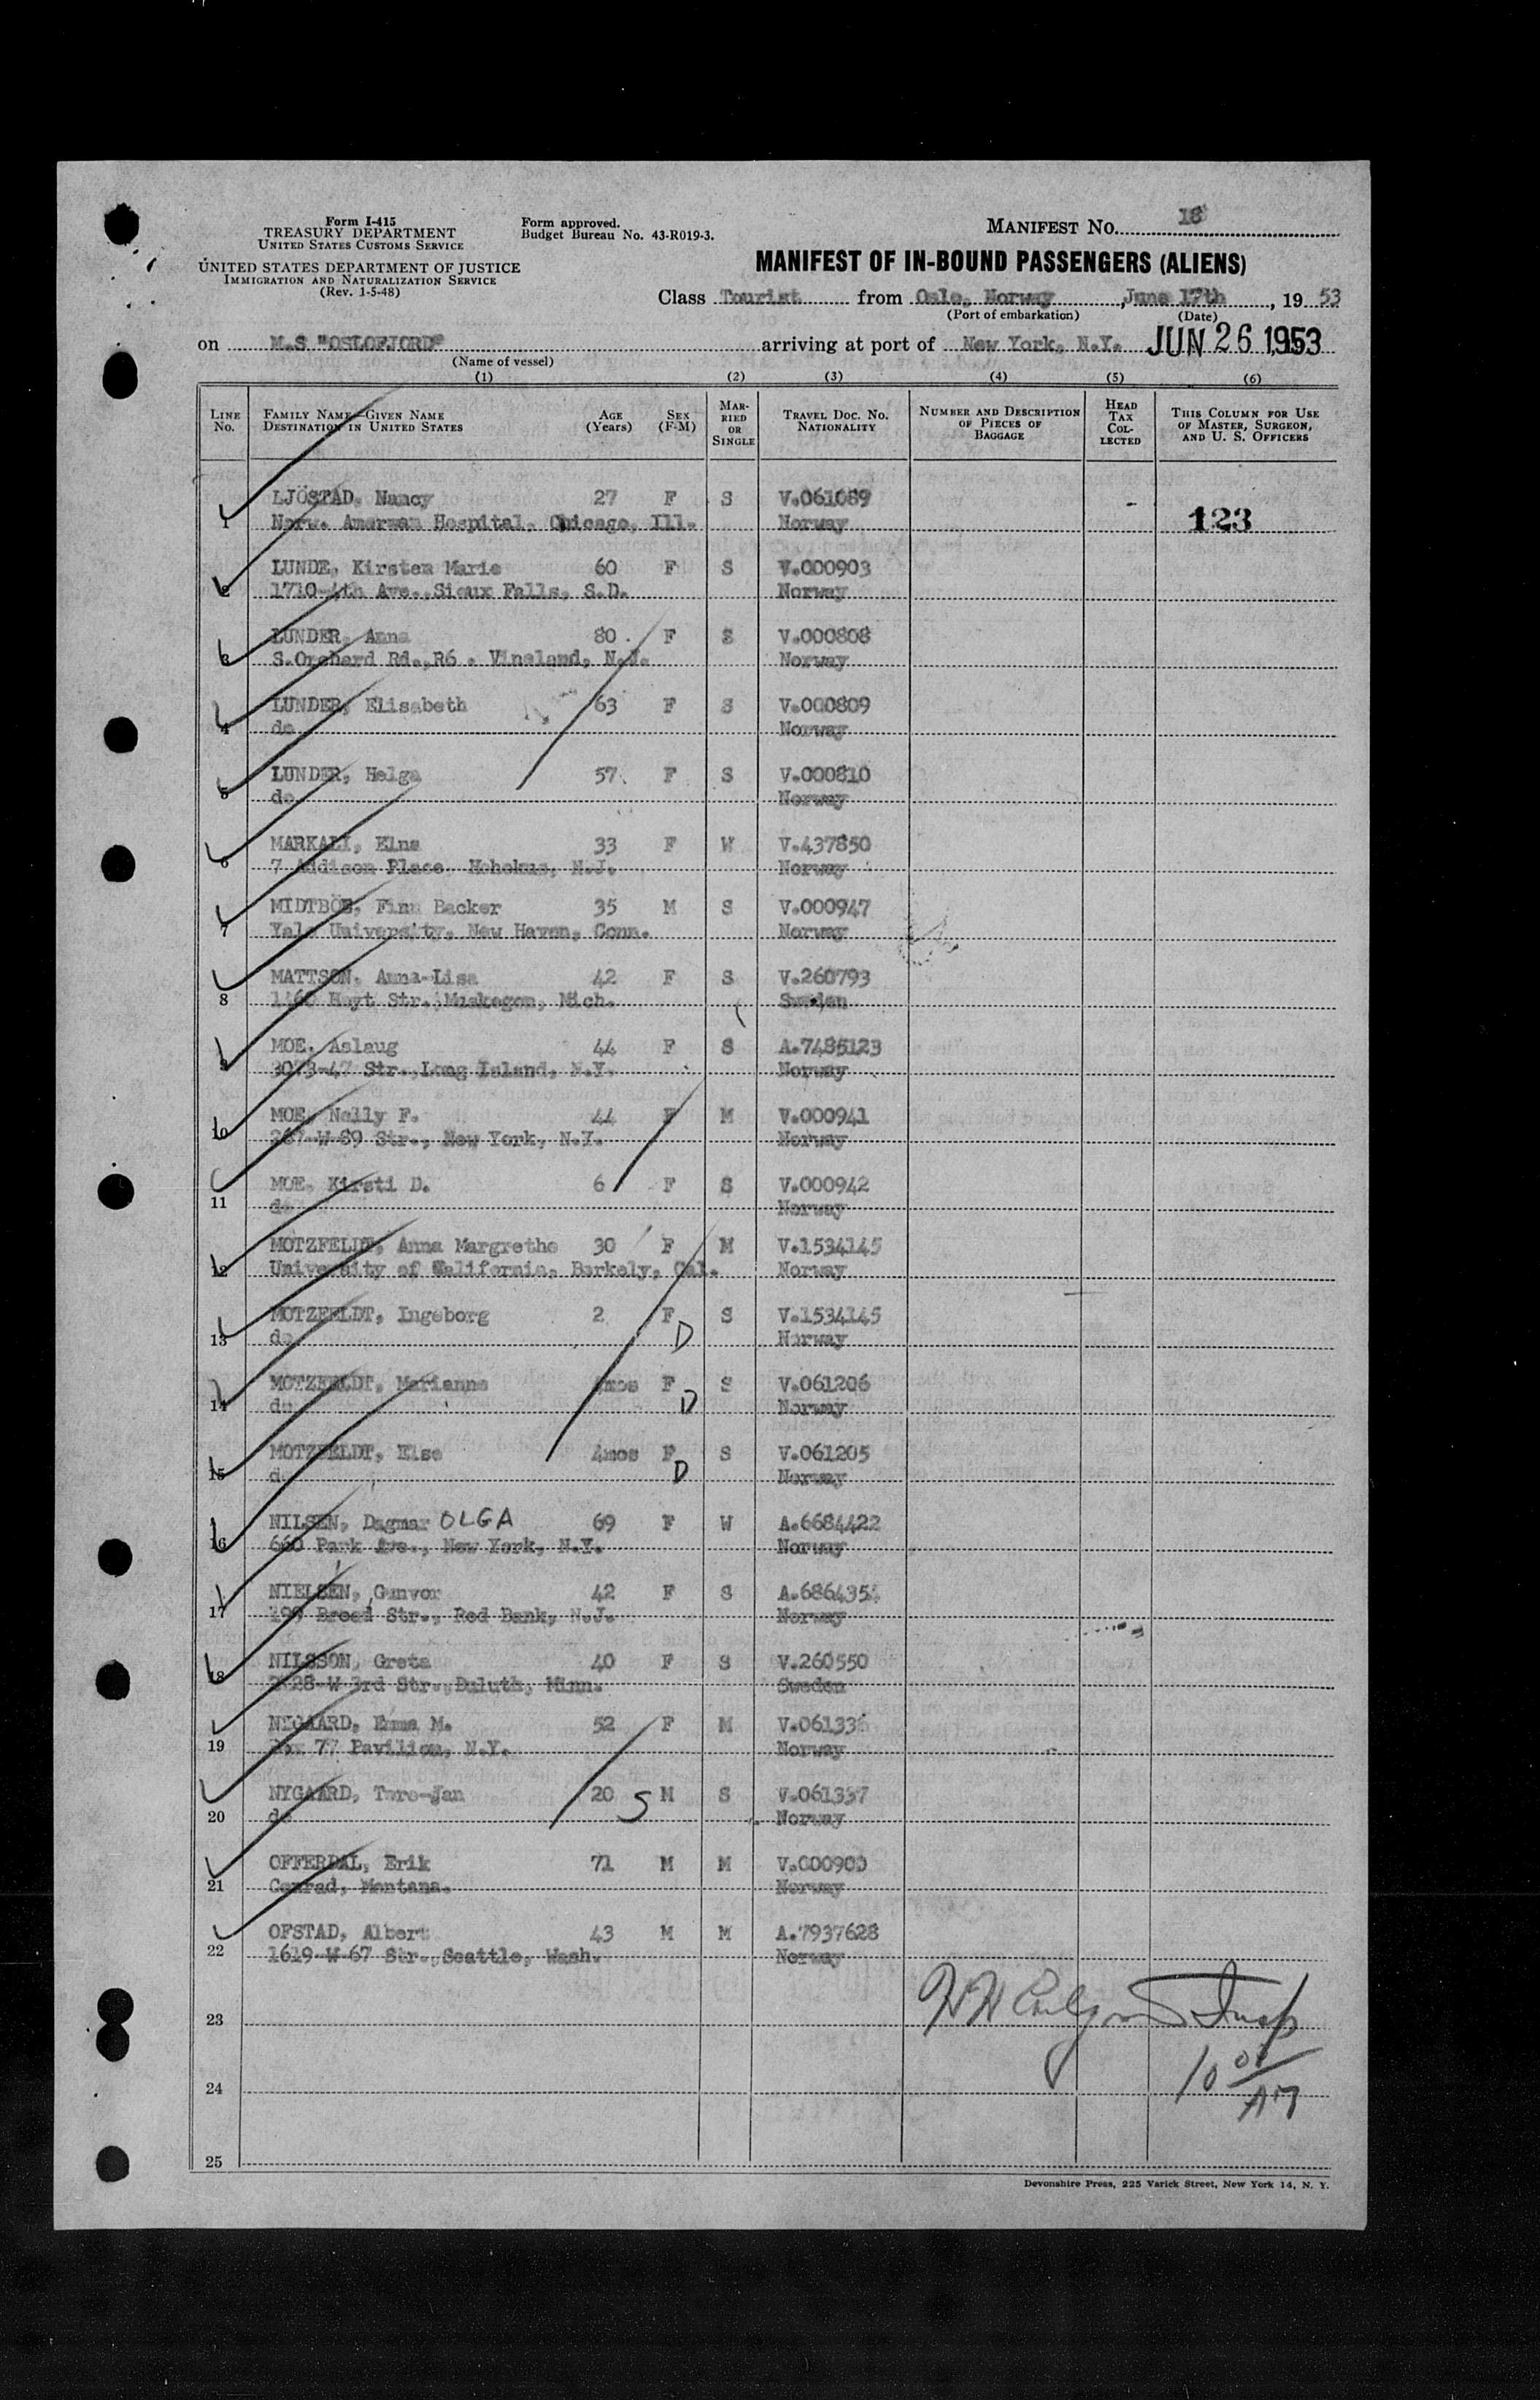 Form I-415
TREASURY DEPARTMENT
UNITED STATES CUSTOMS SERVICE
UNITED STATES DEPARTMENT OF JUSTICE
IMMIGRATION AND NATURALIZATION SERVICE
(Rev. 1-5-48)
Form approved.
Budget Bureau No. 43-R019-3.
MANIFEST NO. 18
MANIFEST OF IN-BOUND PASSENGERS (ALIENS)
Class Tourist from Oslo, Norway, June 17th, 19 53
(Port of embarkation) (Date)
on M.S "OSLOFJORD" arriving at port of New York, N.Y. JUN 26 1953
(Name of vessel)
(1) (2) (3) (4) (5) (6)
LINE NO. FAMILY NAME—GIVEN NAME DESTINATION IN UNITED STATES AGE (Years) SEX (F-M) MARRIED OR SINGLE TRAVEL DOC. NO. NATIONALITY NUMBER AND DESCRIPTION OF PIECES OF BAGGAGE HEAD TAX COLLECTED THIS COLUMN FOR USE OF MASTER, SURGEON, AND U. S. OFFICERS
LJÖSTAD, Nancy 27 F S V.061089 -
1 Norw. Amerwan Hospital. Chicago, Ill. Norway 123
LUNDE, Kirsten Marie 60 F S V.000903
2 1710-4th Ave., Sioux Falls, S.D. Norway
LUNDER, Anna 80 F S V.000808
3 S.Orchard Rd., R6 . Vineland, N.J. Norway
LUNDER, Elisabeth 63 F S V.000809
4 do Norway
LUNDER, Helga 57 F S V.000810
5 do Norway
MARKALI, Elna 33 F W V.437850
6 7 Addison Place, Hohokus, N.J. Norway
MIDTBÖE, Finn Backer 35 M S V.000947
7 Yale University, New Haven, Conn. Norway
MATTSON, Anna-Lisa 42 F S V.260793
8 1160 Hoyt Str., Muskegon, Mich. Sweden
MOE, Aslaug 44 F S A.7485123
9 3073-47 Str., Long Island, N.Y. Norway
MOE, Nelly F. 44 F M V.000941
10 267-W-89 Str., New York, N.Y. Norway
MOE, Kirsti D. 6 F S V.000942
11 do Norway
MOTZFELDT, Anna Margrethe 30 F M V.1534145
12 University of California, Berkely, Cal. Norway
MOTZFELDT, Ingeborg 2 F S V.1534145
13 do D Norway
MOTZFELDT, Marianne 4mos F S V.061206
14 do D Norway
MOTZFELDT, Else 4mos F S V.061205
15 do D Norway
NILSEN, Dagmar OLGA 69 F W A.6684422
16 660 Park Ave., New York, N.Y. Norway
NIELSEN, Gunvor 42 F S A.6864354
17 199 Broad Str., Red Bank, N.J. Norway
NILSSON, Greta 40 F S V.260550
18 2828-W 3rd Str., Duluth, Minn. Sweden
NYGAARD, Emma M. 52 F M V.061336
19 Box 77 Pavilion, N.Y. Norway
NYGAARD, Tore-Jan 20 S M S V.061337
20 do Norway
OFFERDAL, Erik 71 M M V.000900
21 Conrad, Montana. Norway
OFSTAD, Albert 43 M M A.7937628
22 1619-W-67 Str., Seattle, Wash. Norway
23 Insp
24 10 00 AM
25
Devonshire Press, 225 Varick Street, New York 14, N. Y.